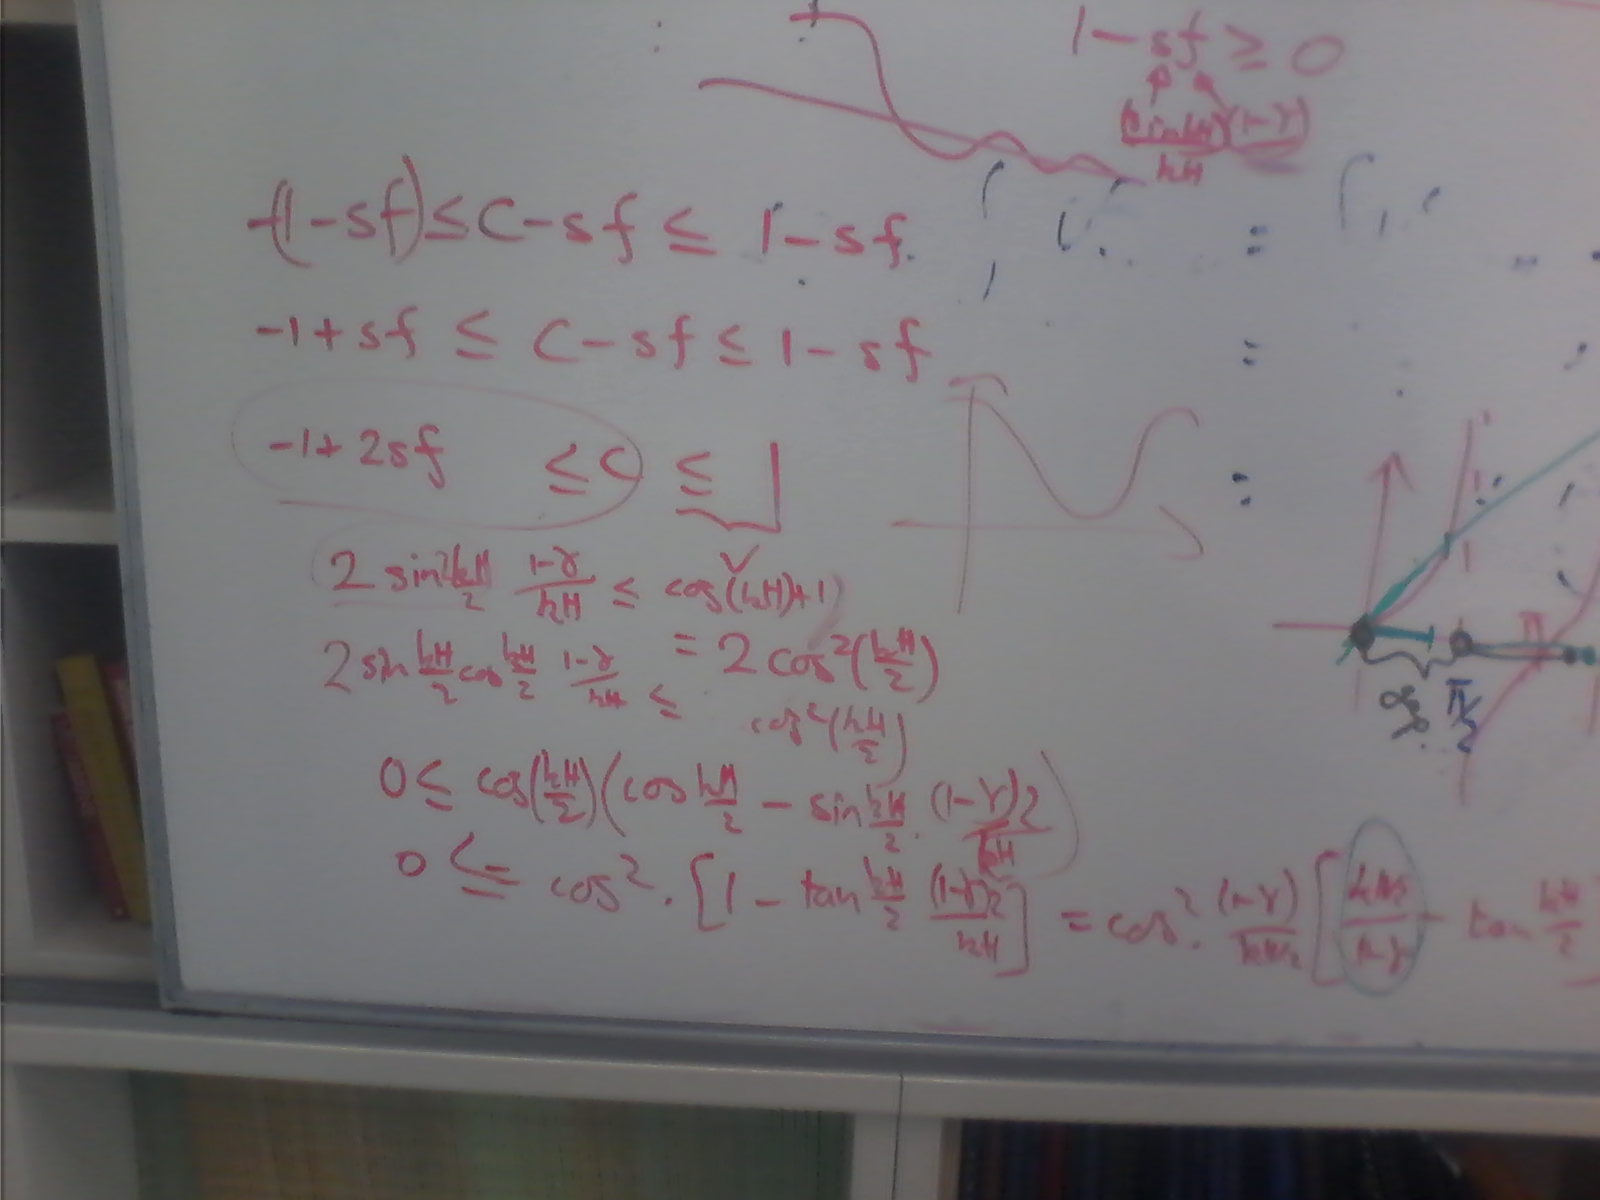 1 - sf ≥ 0
(sin hH)(1-γ)
hH
-(1-sf) ≤ C-sf ≤ 1-sf.
-1+sf ≤ C-sf ≤ 1-sf
-1+2sf ≤ C ≤ 1
2 sin 2hH/2 1-γ/hH ≤ cos(hH)+1
2 sin hH/2 cos hH/2 1-γ/hH ≤ = 2 cos²(hH/2)
cos²(hH/2)
0 ≤ cos(hH/2)(cos hH/2 - sin hH/2 · (1-γ)2/hH)
0 ≤ cos² · [1 - tan hH/2 (1-γ)2/hH] = cos² · (1-γ)/hH/2 [hH/2/1-γ - tan hH/2]
π
π/2